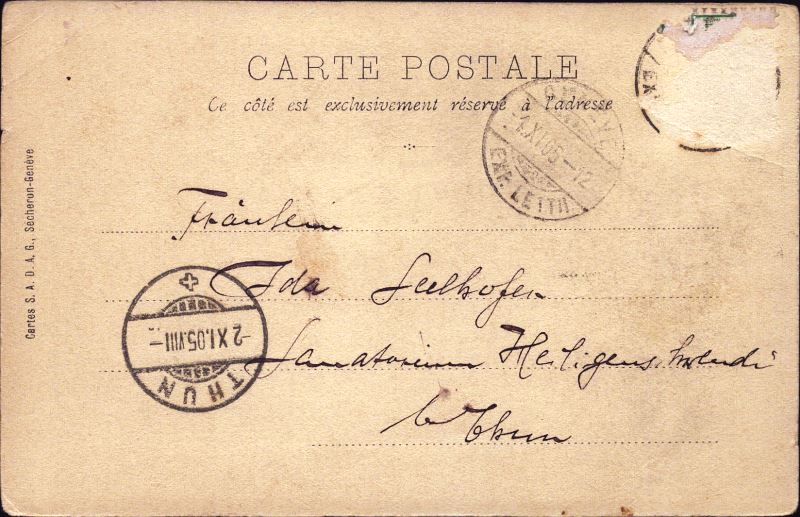 CARTE POSTALE
Ce côté est exclusivement réservé à l'adresse
GENÈVE
-1.XI.05-12
EXP. LETTR.
EX
Cartes S. A. D. A. G., Sécheron-Genève
Fräulein
Ida Seelhofer
Sanatorium Heiligenschwendi
b/ Thun
-2.XI.05.VIII-
THUN